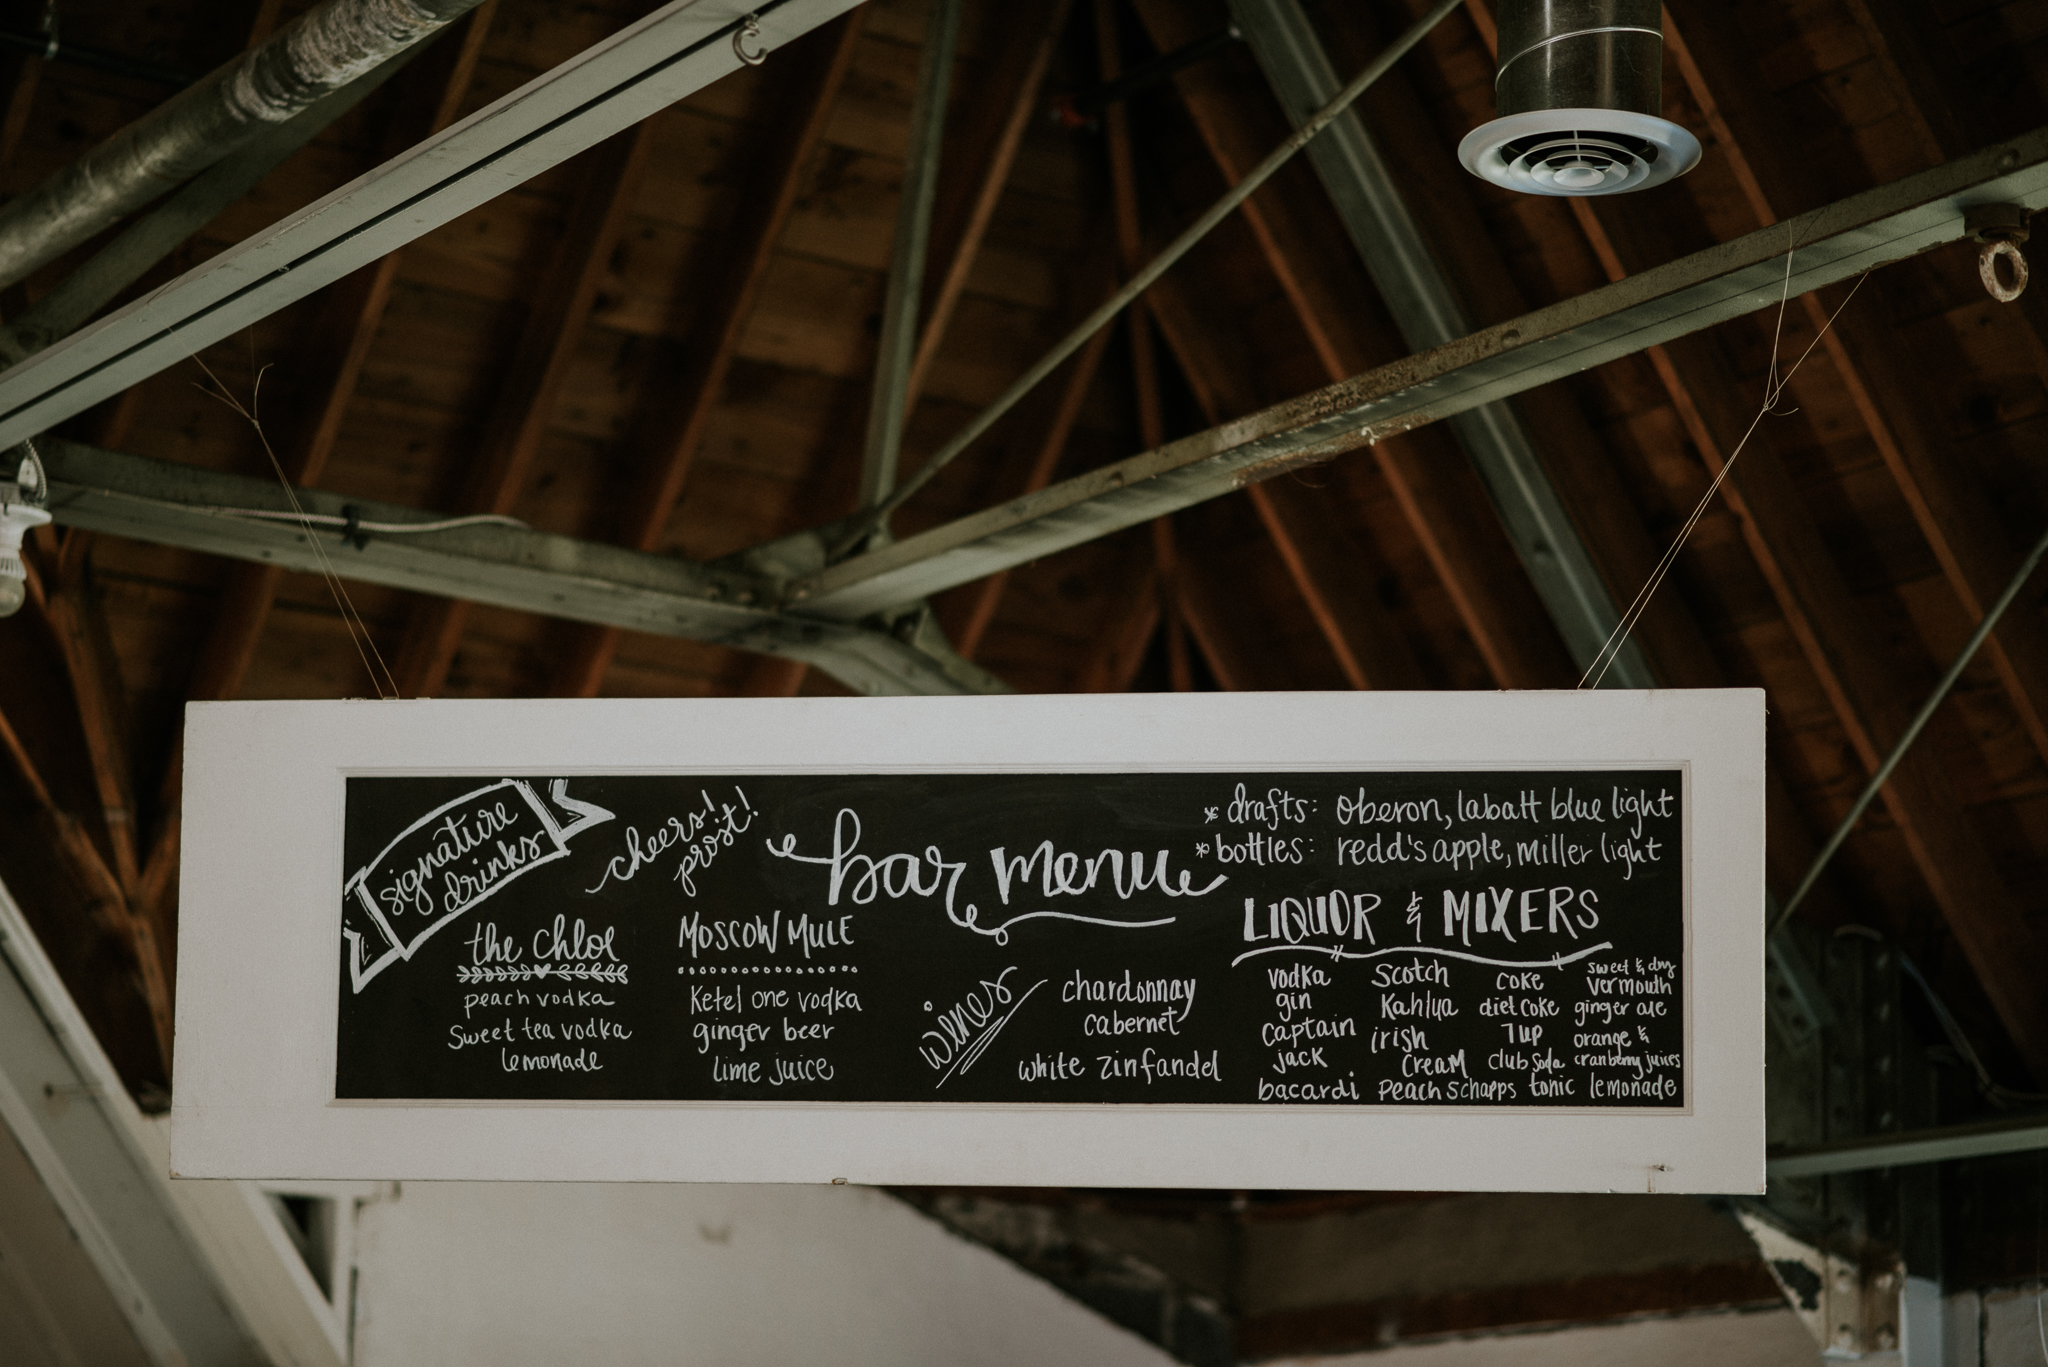 signature
drinks
cheers!
prost!
bar menu
* drafts: oberon, labatt blue light
* bottles: redd's apple, miller light
the chloe
peach vodka
sweet tea vodka
lemonade
MOSCOW MULE
Ketel one vodka
ginger beer
lime juice
wines
chardonnay
cabernet
white zinfandel
LIQUOR & MIXERS
vodka
gin
captain
jack
bacardi
scotch
Kahlua
irish
cream
peach schapps
coke
diet coke
7up
club soda
tonic
sweet & dry
vermouth
ginger ale
orange &
cranberry juices
lemonade